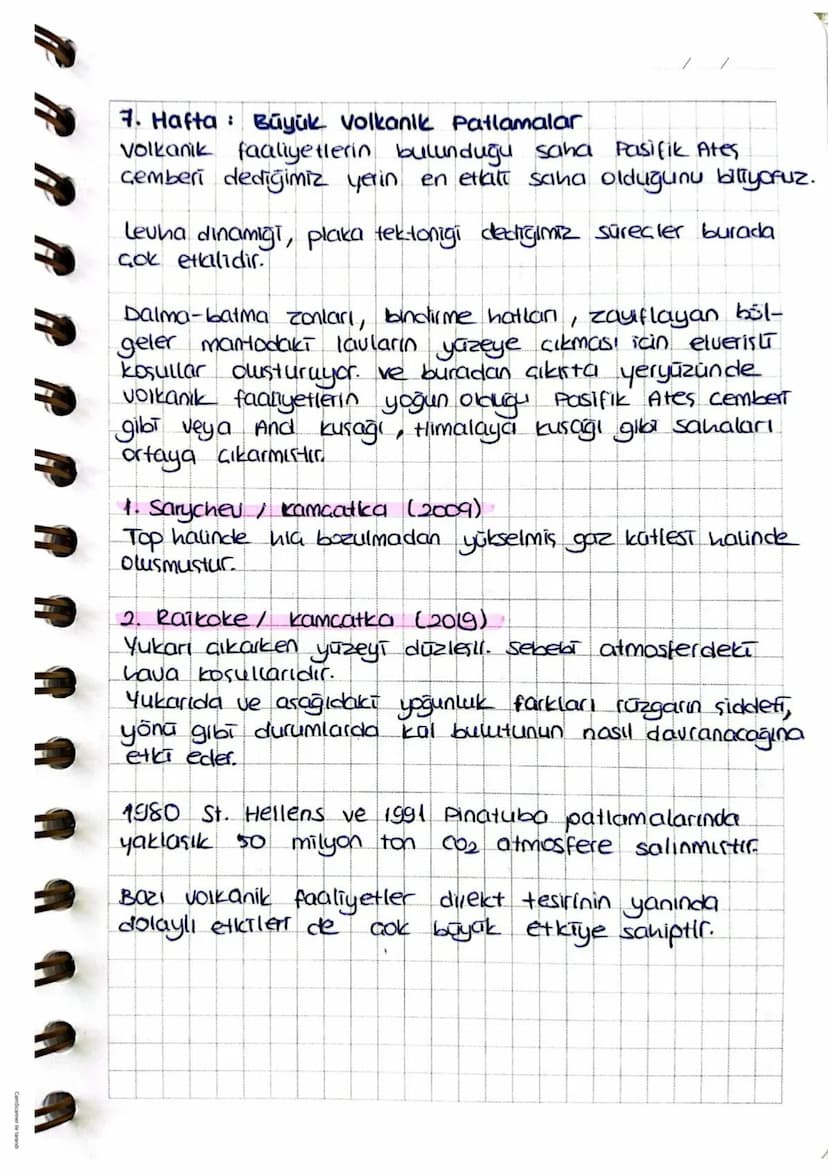 / /
7. Hafta : Büyük Volkanik Patlamalar
Volkanik faaliyetlerin bulunduğu saha Pasifik Ateş
Çemberi dediğimiz yerin en etkili saha olduğunu biliyoruz.
Levha dinamiği, plaka tektoniği dediğimiz süreçler burada
çok etkilidir.
Dalma-batma zonları, bindirme hatları, zayıflayan böl-
geler mantodaki lavların yüzeye çıkması için elverişli
koşullar oluşturuyor. ve buradan çıkışta yeryüzünde
volkanik faaliyetlerin yoğun olduğu Pasifik Ateş Çemberi
gibi veya And kuşağı, Himalaya kuşağı gibi sahaları
ortaya çıkarmıştır.
1. Sarychev / Kamçatka (2009)
Top halinde hiç bozulmadan yükselmiş gaz kütlesi halinde
oluşmuştur.
2. Raikoke / Kamçatka (2019)
Yukarı çıkarken yüzeyi düzleşir. Sebebi atmosferdeki
hava koşullarıdır.
Yukarıda ve aşağıdaki yoğunluk farkları rüzgarın şiddeti,
yönü gibi durumlarda kül bulutunun nasıl davranacağına
etki eder.
1980 St. Hellens ve 1991 Pinatubo patlamalarında
yaklaşık 50 milyon ton CO2 atmosfere salınmıştır.
Bazı volkanik faaliyetler direkt tesirinin yanında
dolaylı etkileri de çok büyük etkiye sahiptir.
CamScanner ile tarandı